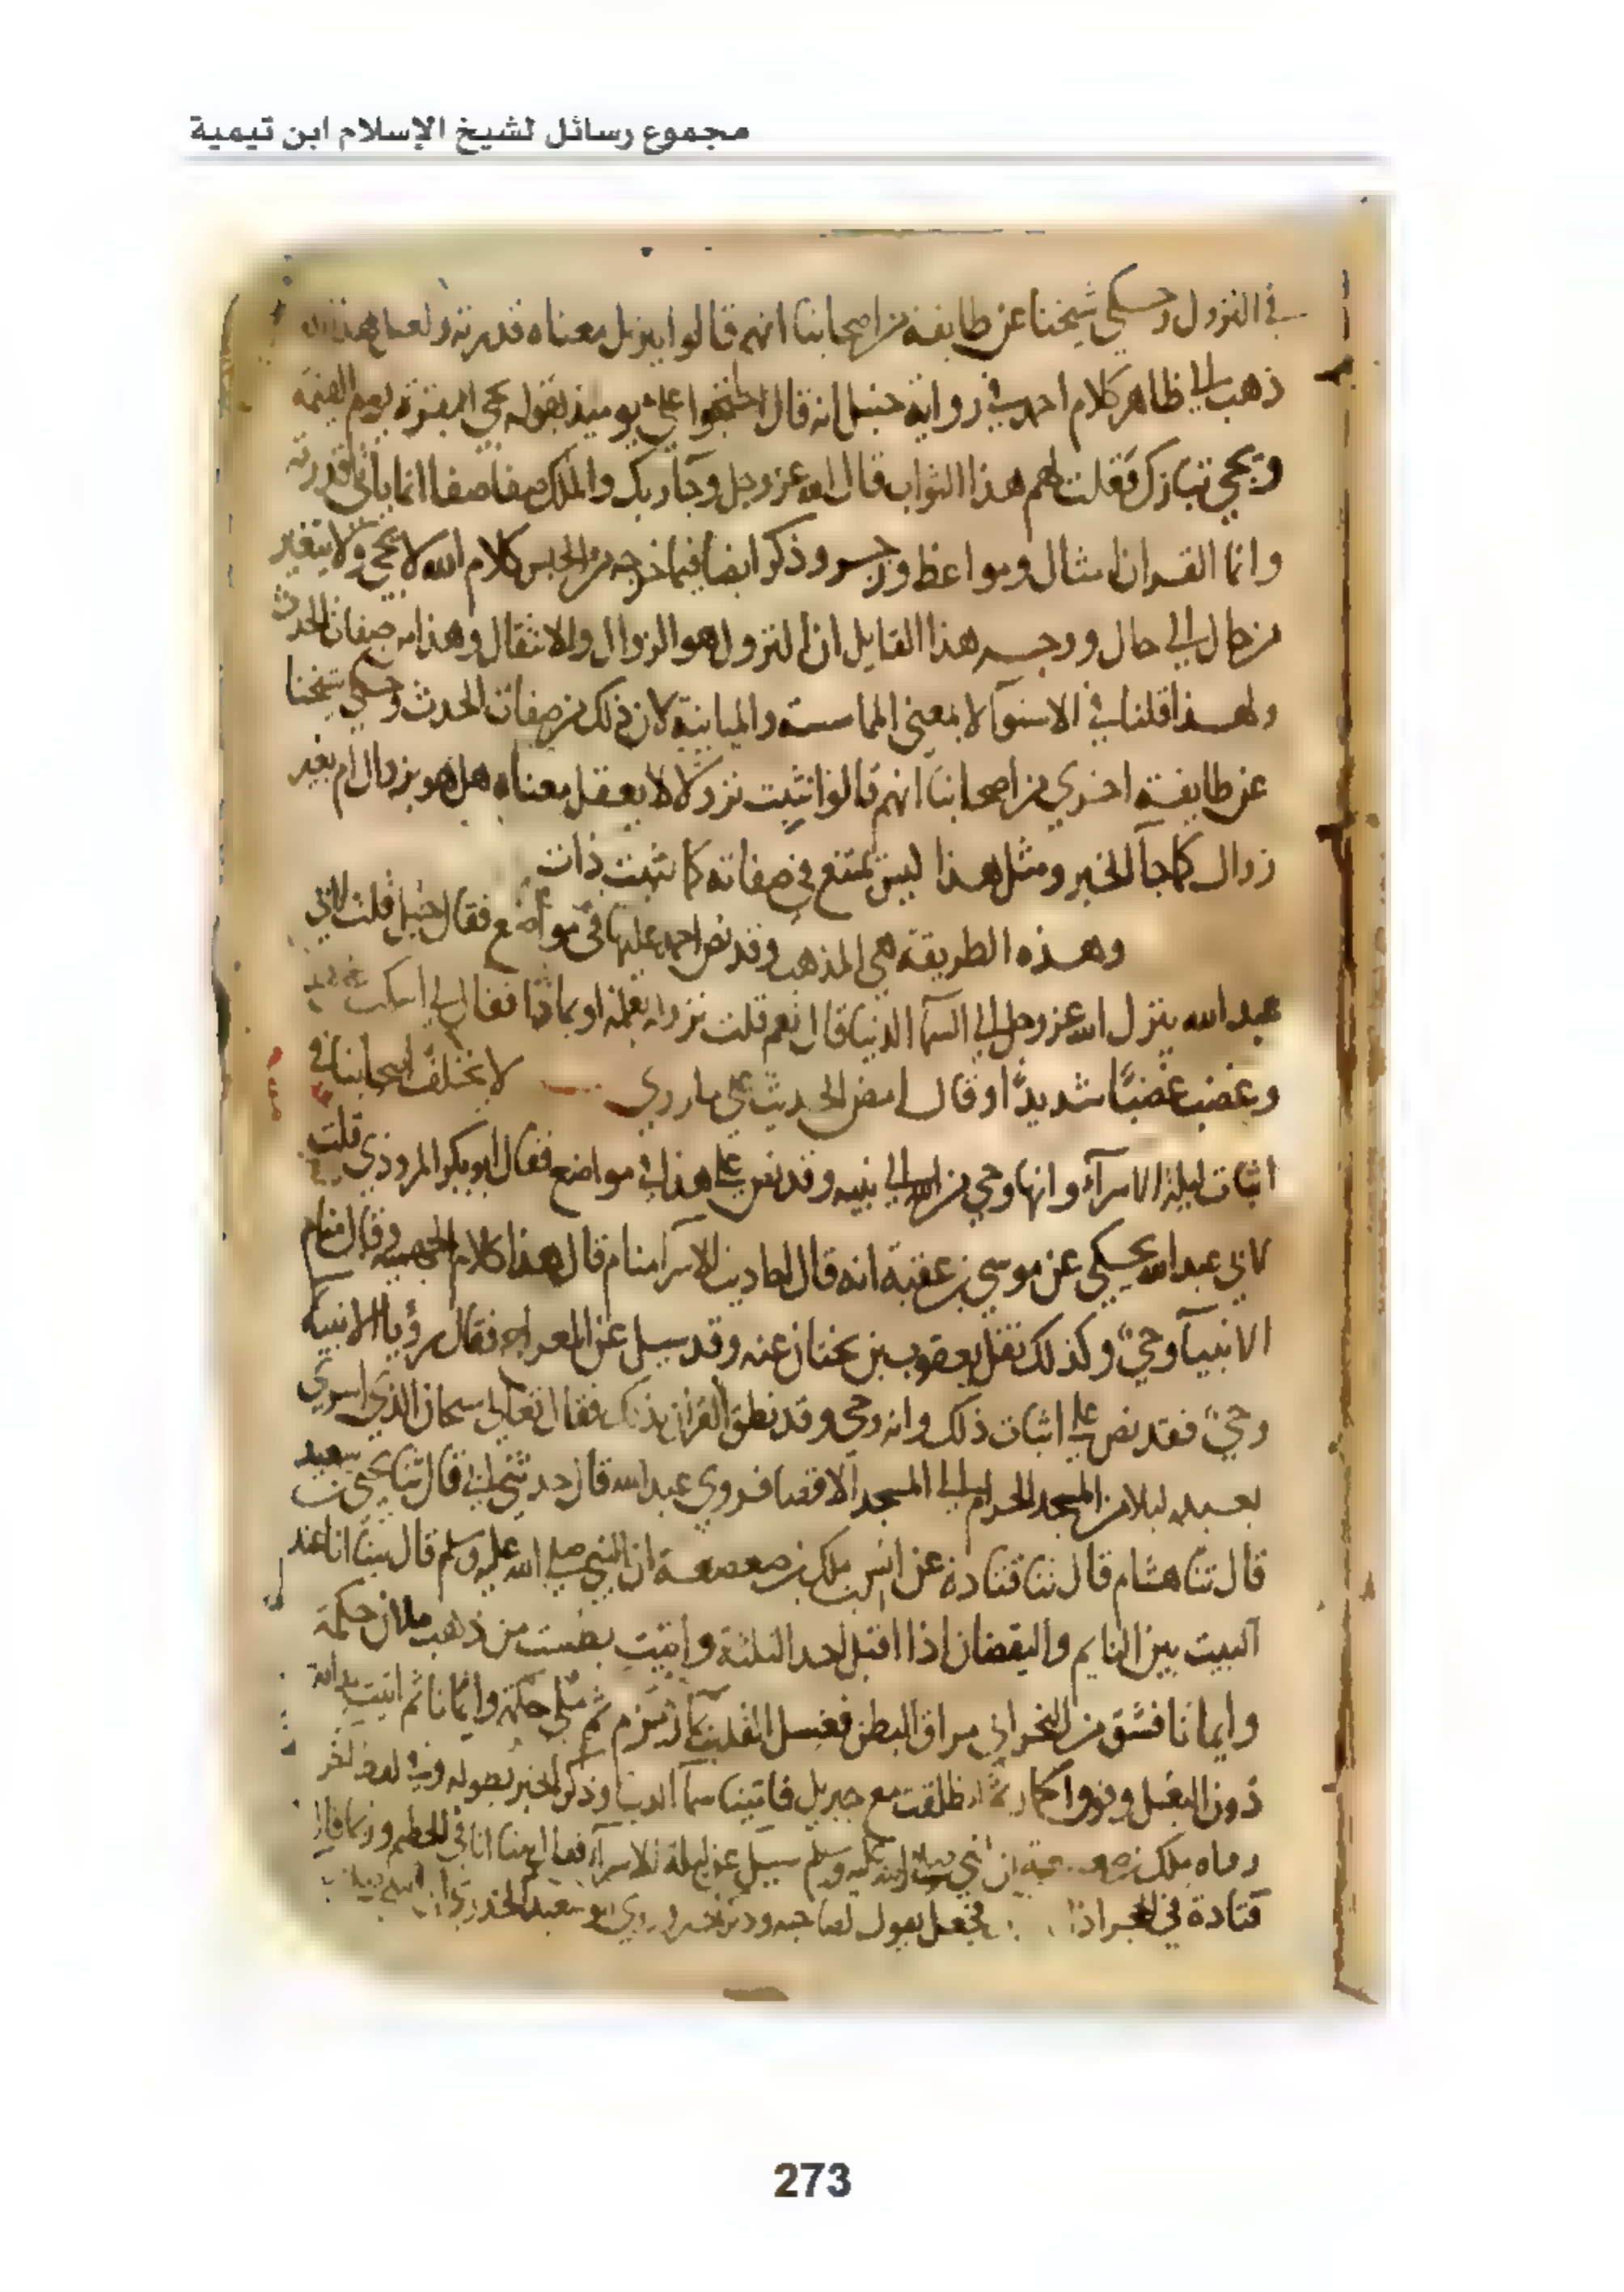 مجموع رسائل لشيخ الإسلام ابن تيمية
في النزول وحكى شيخنا عن طايفة من اصحابنا انهم قالوا ينزل معناه قدرته ولعل هذا
ذهب الى ظاهر كلام احمد في رواية حنبل انه قال احتجوا علي يوميذ بقوله تجي البقرة يوم القيمة
وتجي تبارك فقلت لهم هذا الثواب قال الله عز وجل وجآ ربك والملك صفا صفا انما ياتي قدرته
وانما القران امثال ومواعظ وزجر وذكر ايضا فيما خرجه في الحبس كلام الله لا يجي ولا يتغير
من حال الى حال ووجه هذا القايل ان النزول هو الزوال والانتقال وهذا من صفات الحدث
ولهذا قلنا في الاستوآ لا بمعنى المماسة والمباينة لان ذلك من صفات الحدث وحكى شيخنا
عن طايفة اخرى من اصحابنا انهم قالوا نثبت نزولا لا يعقل معناه هل هو بزوال ام بغير
زوال كما جآ الخبر ومثل هذا ليس بممتنع في صفاته كما نثبت ذات
وهذه الطريقة هي المذهب وقد نص احمد عليها في مواضع فقال حنبل قلت لابي
عبد الله ينزل الله عز وجل الى السمآ الدنيا قال نعم قلت نزوله بعلمه او بماذا فقال لي اسكت عن هذا
وغضب غضبًا شديدًا وقال امض الحديث على ما روي لا يختلف اصحابنا في
اثبات ليلة الاسرآء وانها وحي من الله الى نبيه وقد نص على هذا في مواضع فقال ابو بكر المروذي قلت
لابي عبد الله يحكى عن موسى بن عقبة انه قال احاديث الاسرا منام قال هذا كلام الجهمية وقال منام
الانبيآ وحيٌ وكذلك نقل يعقوب بن بختان عنه وقد سيل عن المعراج فقال رؤيا الانبيآ
وحيٌ فقد نص على اثبات ذلك وانه وحي وقد نطق القران بذلك فقال تعالى سبحان الذي اسرى
بعبده ليلا من المسجد الحرام الى المسجد الاقصا فروى عبد الله قال حدثني ابي قال ثنا يحيى بن سعيد
قال ثنا هشام قال ثنا قتادة عن انس بن ملك بن صعصعة ان النبي صلى الله عليه وسلم قال بينا انا عند
البيت بين النايم واليقضان اذا اقبل احد الثلثة واتيت بطست من ذهب ملان حكمة
وايمانا فشق من النحر الى مراق البطن فغسل القلب بمآ زمزم ثم ملي حكمة وايمانا ثم اتيت بدابة
دون البغل وفوق الحمار ثم انطلقت مع جبريل فاتينا سمآ الدنيا وذكر الخبر بطوله وفي لفظ اخر
رواه ملك بن صعصعة ان النبي صلى الله عليه وسلم سيل عن ليلة الاسرآء فقال بينا انا في الحطيم وربما قال
قتادة في الحجر اذ فجعل يقول لصاحبه وروى ابو سعيد الخدري ان
273